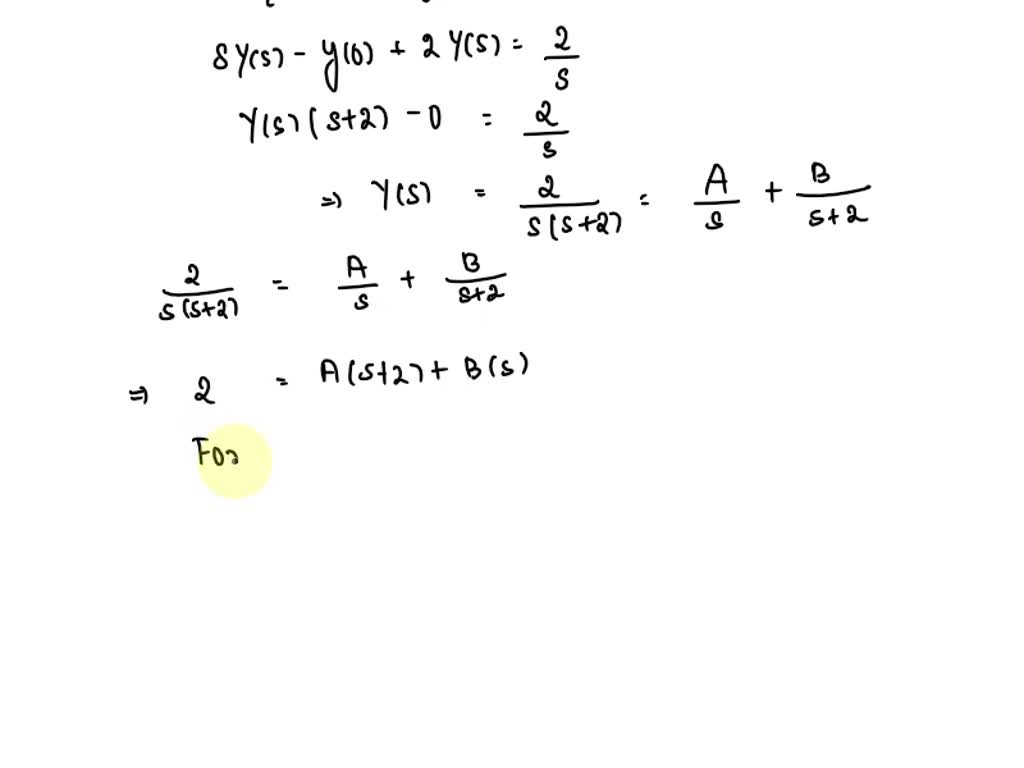 sY(s) - y(0) + 2Y(s) = 2/s
Y(s)(s+2) - 0 = 2/s
⇒ Y(s) = 2/s(s+2) = A/s + B/s+2
2/s(s+2) = A/s + B/s+2
⇒ 2 = A(s+2) + B(s)
For